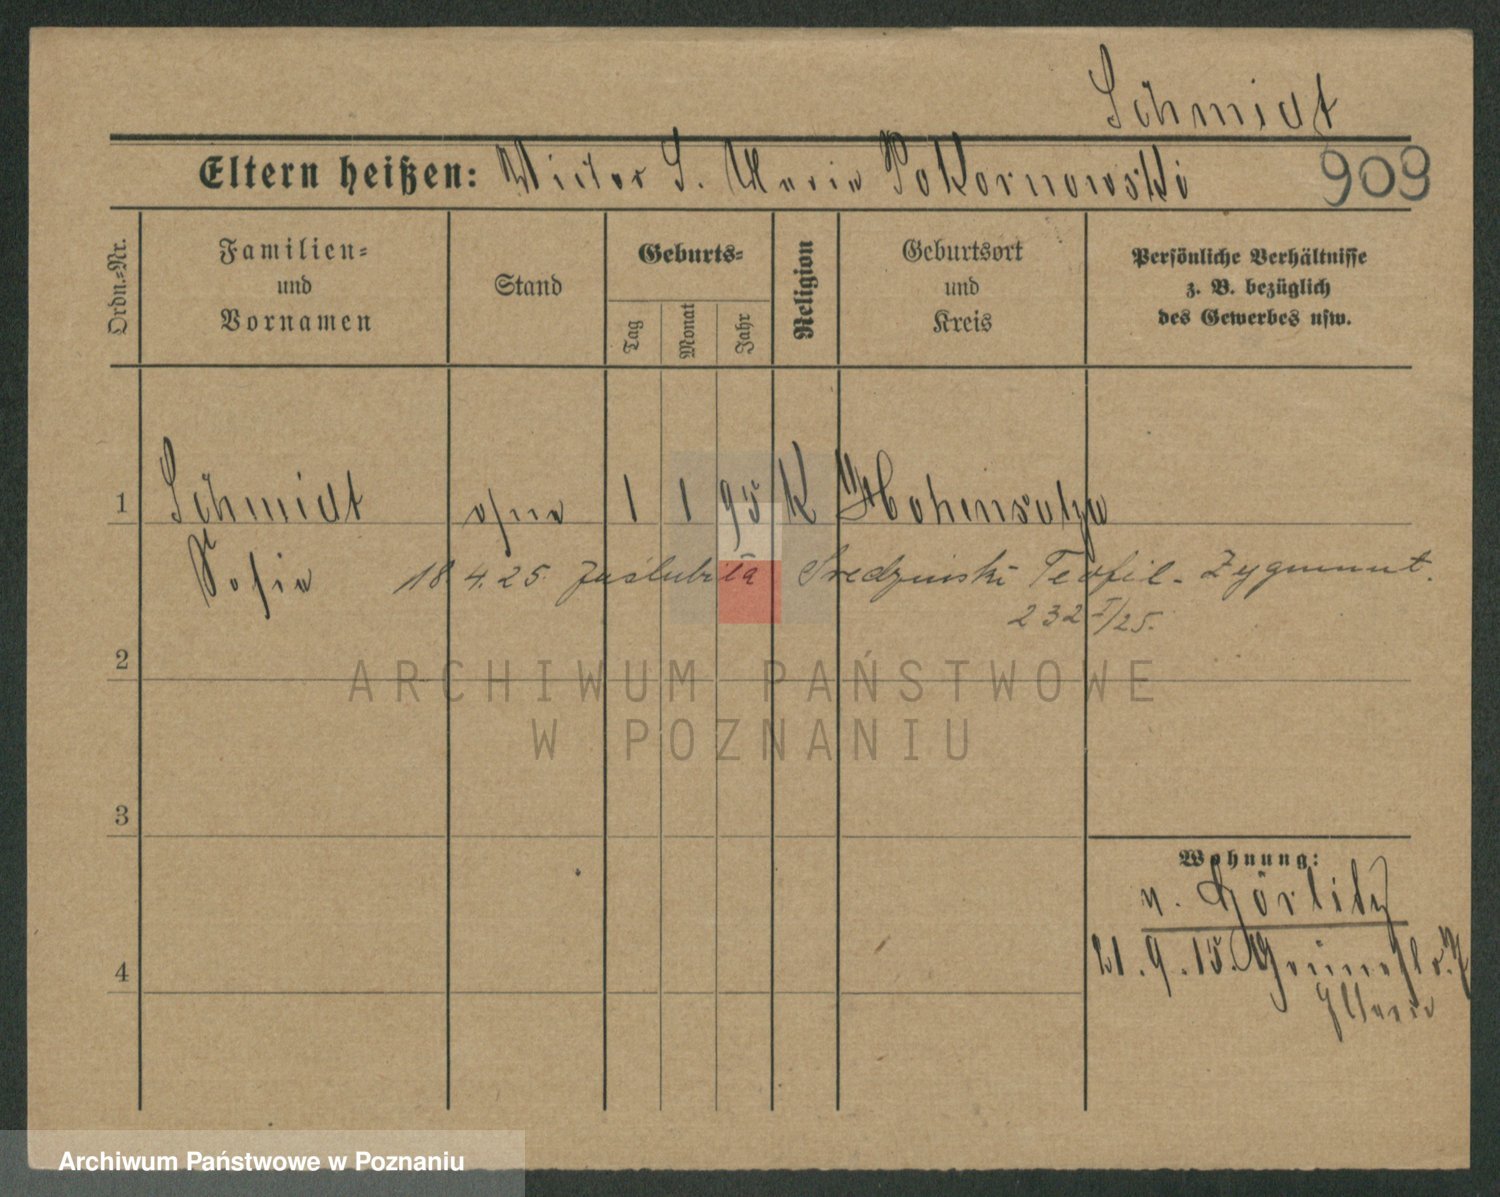 Schmidt
Eltern heißen: Victor S. Maria Pokornowski 909
Ordn.-Nr.
Familien-
und
Vornamen
Stand
Geburts-
Tag
Monat
Jahr
Religion
Geburtsort
und
Kreis
Persönliche Verhältnisse
z. B. bezüglich
des Gewerbes usw.
1 Schmidt ohne 1 1 95 K Hohensalza
Sofie 18.4.25. zaślubiła Średzinski Teofil-Zygmunt.
232 I/25.
2
ARCHIWUM PAŃSTWOWE
W POZNANIU
3
Wohnung:
n. Görlitz
4
21.9.15.
Archiwum Państwowe w Poznaniu